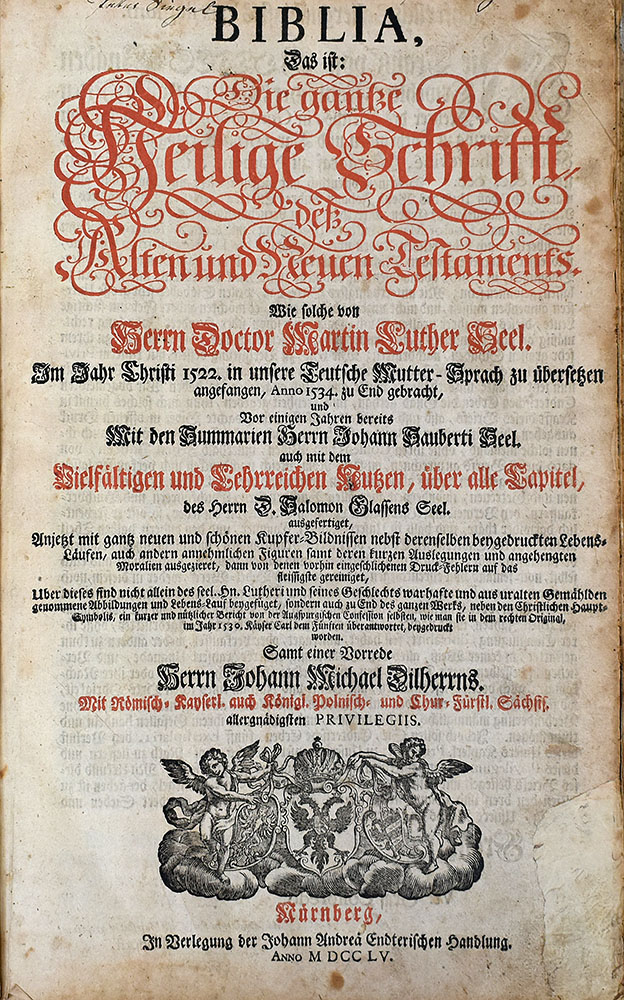 BIBLIA,
Das ist:
Die gantze
Heilige Schrifft,
deß
Alten und Neuen Testaments.
Wie solche von
Herrn Doctor Martin Luther Seel.
Im Jahr Christi 1522. in unsere Teutsche Mutter-Sprach zu übersetzen
angefangen, Anno 1534. zu End gebracht,
und
Vor einigen Jahren bereits
Mit den Summarien Herrn Johann Sauberti Seel.
auch mit dem
Vielfältigen und Lehrreichen Nutzen, über alle Capitel,
des Herrn D. Salomon Glassens Seel.
ausgefertiget,
Anjetzt mit gantz neuen und schönen Kupfer-Bildnissen nebst derenselben beygedruckten Lebens-
Läufen, auch andern annehmlichen Figuren samt deren kurzen Auslegungen und angehengten
Moralien ausgezieret, dann von denen vorhin eingeschlichenen Druck-Fehlern auf das
fleissigste gereiniget,
Uber dieses sind nicht allein des seel. Hn. Lutheri und seines Geschlechts warhafte und aus uralten Gemählden
genommene Abbildungen und Lebens-Lauf beygefüget, sondern auch zu End des ganzen Werks, neben den Christlichen Haupt-
Symbolis, ein kurzer und nützlicher Bericht von der Augspurgischen Confession selbsten, wie man sie in dem rechten Original,
im Jahr 1530. Käyser Carl dem Fünften überantwortet, beygedruckt
worden.
Samt einer Vorrede
Herrn Johann Michael Dilherrns.
Mit Römisch-Kayserl. auch Königl. Polnisch- und Chur-Fürstl. Sächsis.
allergnädigsten PRIVILEGIIS.
Nürnberg,
In Verlegung der Johann Andreä Endterischen Handlung.
ANNO M DCC LV.